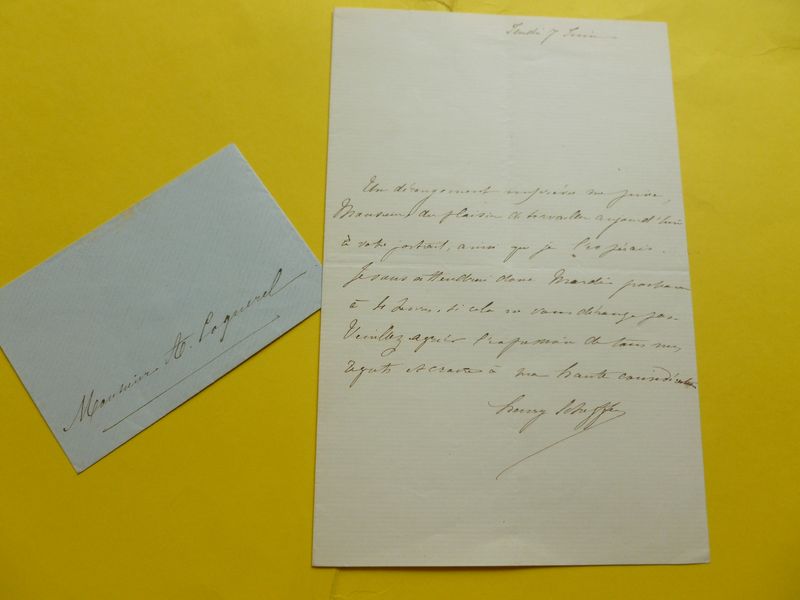 Jeudi 7 Juin
Un dérangement imprévu me prive,
Monsieur du plaisir de travailler aujourd'hui
à votre portrait, ainsi que je l'espérais.
Je vous attendrai donc Mardi prochain
à heures, si cela ne vous dérange pas.
Veuillez agréer l'expression de tous mes
regrets et croire à ma haute considération
henry Scheffer
Monsieur At. Coquerel